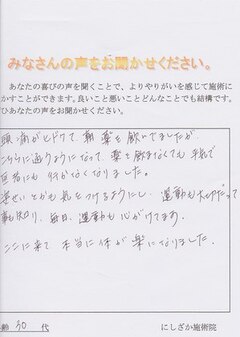 みなさんの声をお聞かせください。
あなたの喜びの声を聞くことで、よりやりがいを感じて施術に
かすことができます。良いこと悪いことどんなことでも結構です。
ひあなたの声をお聞かせください。
頭痛がヒドクて、薬を飲いでましたが、
こちらに通うようになって 薬を飲まなくても平気で
にも行かなくなりました。
姿せいとかも気をつけるようにし、運動も大切だって
知り、毎日、運動も心がけてます。
ここに来て 本当に体が楽になりました。
齢 30 代
にしざか施術院